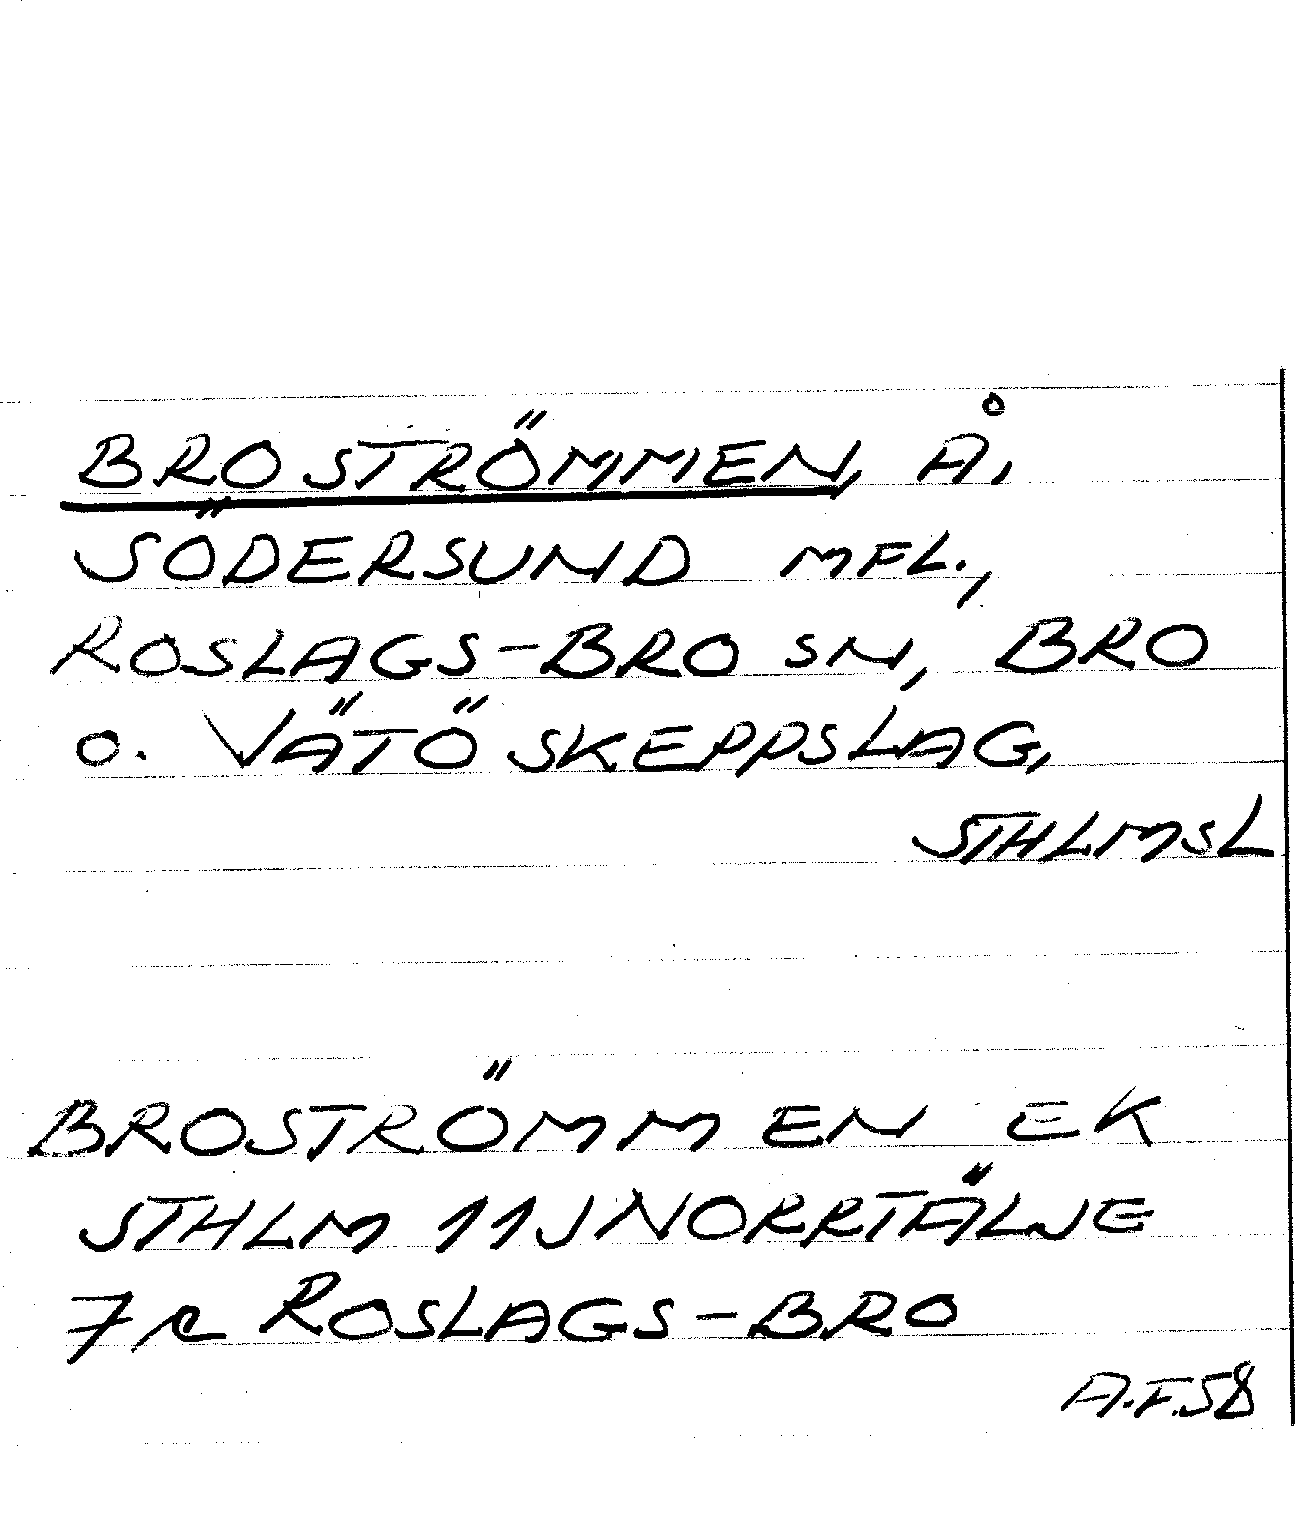 BROSTRÖMMEN, Å,
SÖDERSUND MFL.,
ROSLAGS-BRO SN, BRO
O. VÄTÖ SKEPPSLAG,
STHLMSL
BROSTRÖMMEN EK
STHLM 11J NORRTÄLJE
7/c ROSLAGS-BRO
A.F. 58